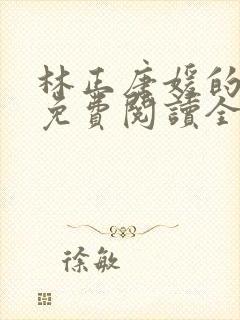 林正唐媛的
免費閱讀全
徐敏